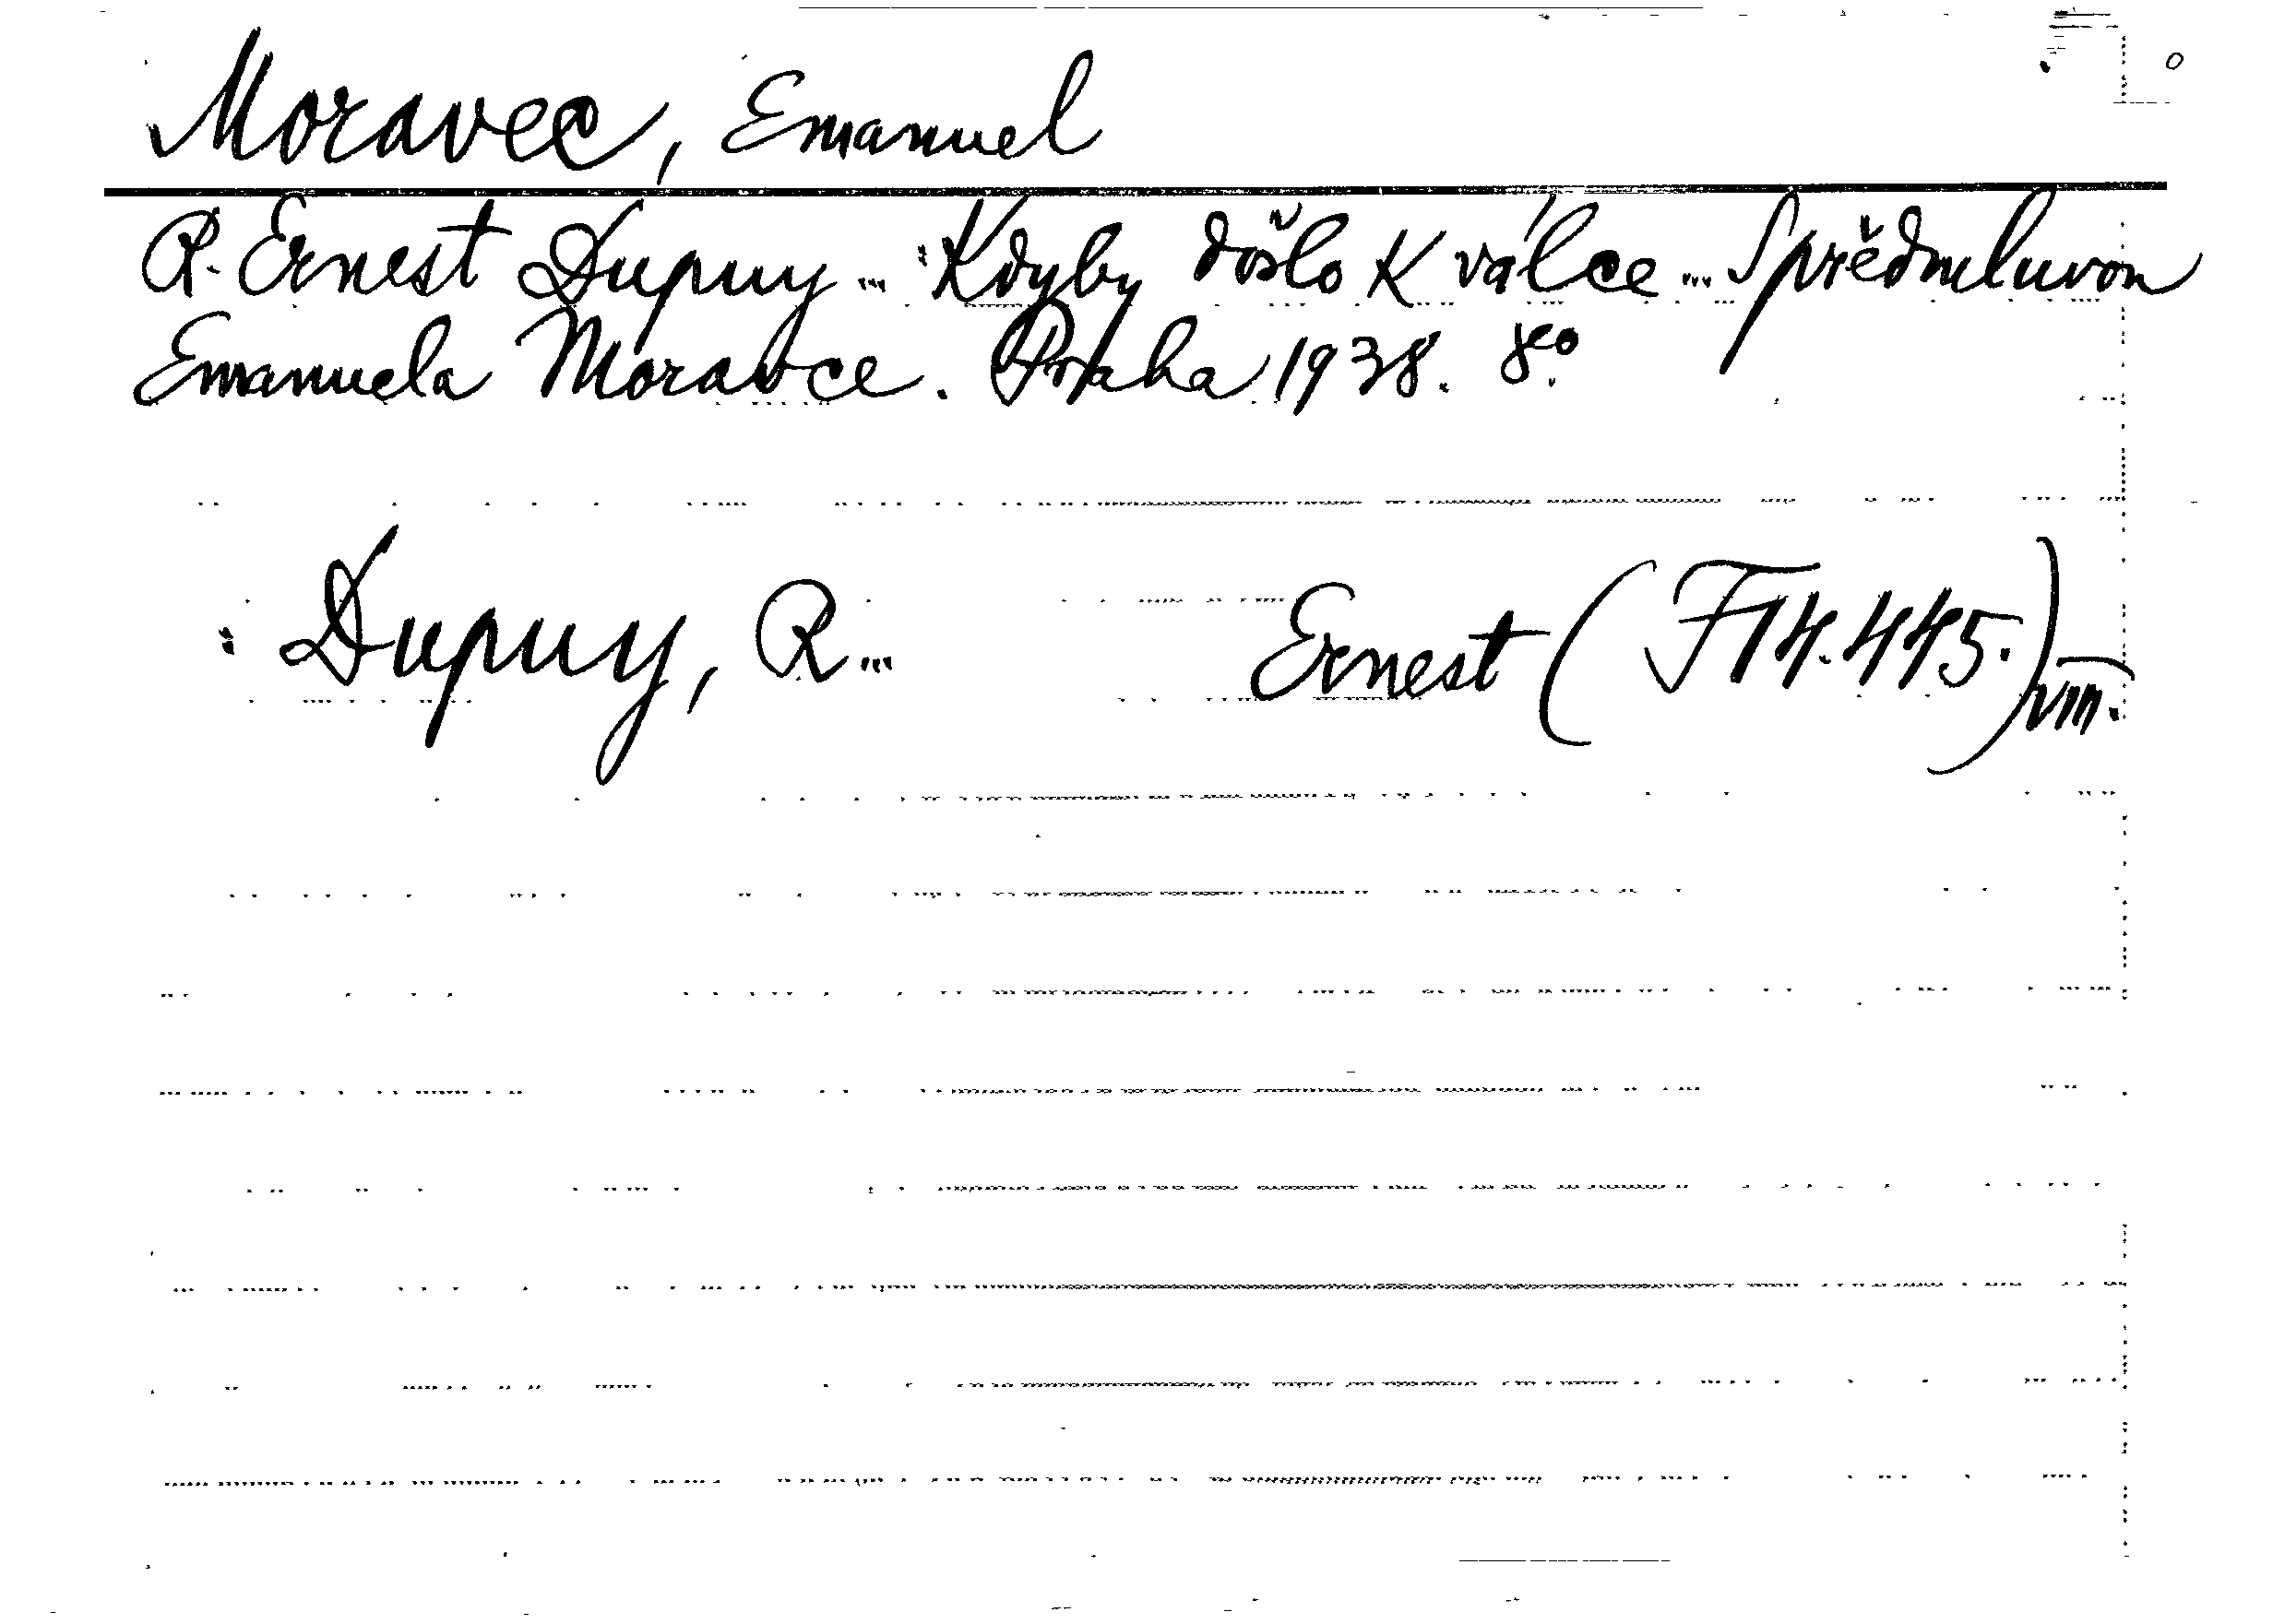 Moravec, Emanuel
R. Ernest Dupuy... : Kdyby došlo k válce... S předmluvou
Emanuela Moravce. Praha 1938. 8°.
: Dupuy, R... Ernest (F 14.445.) VIII.